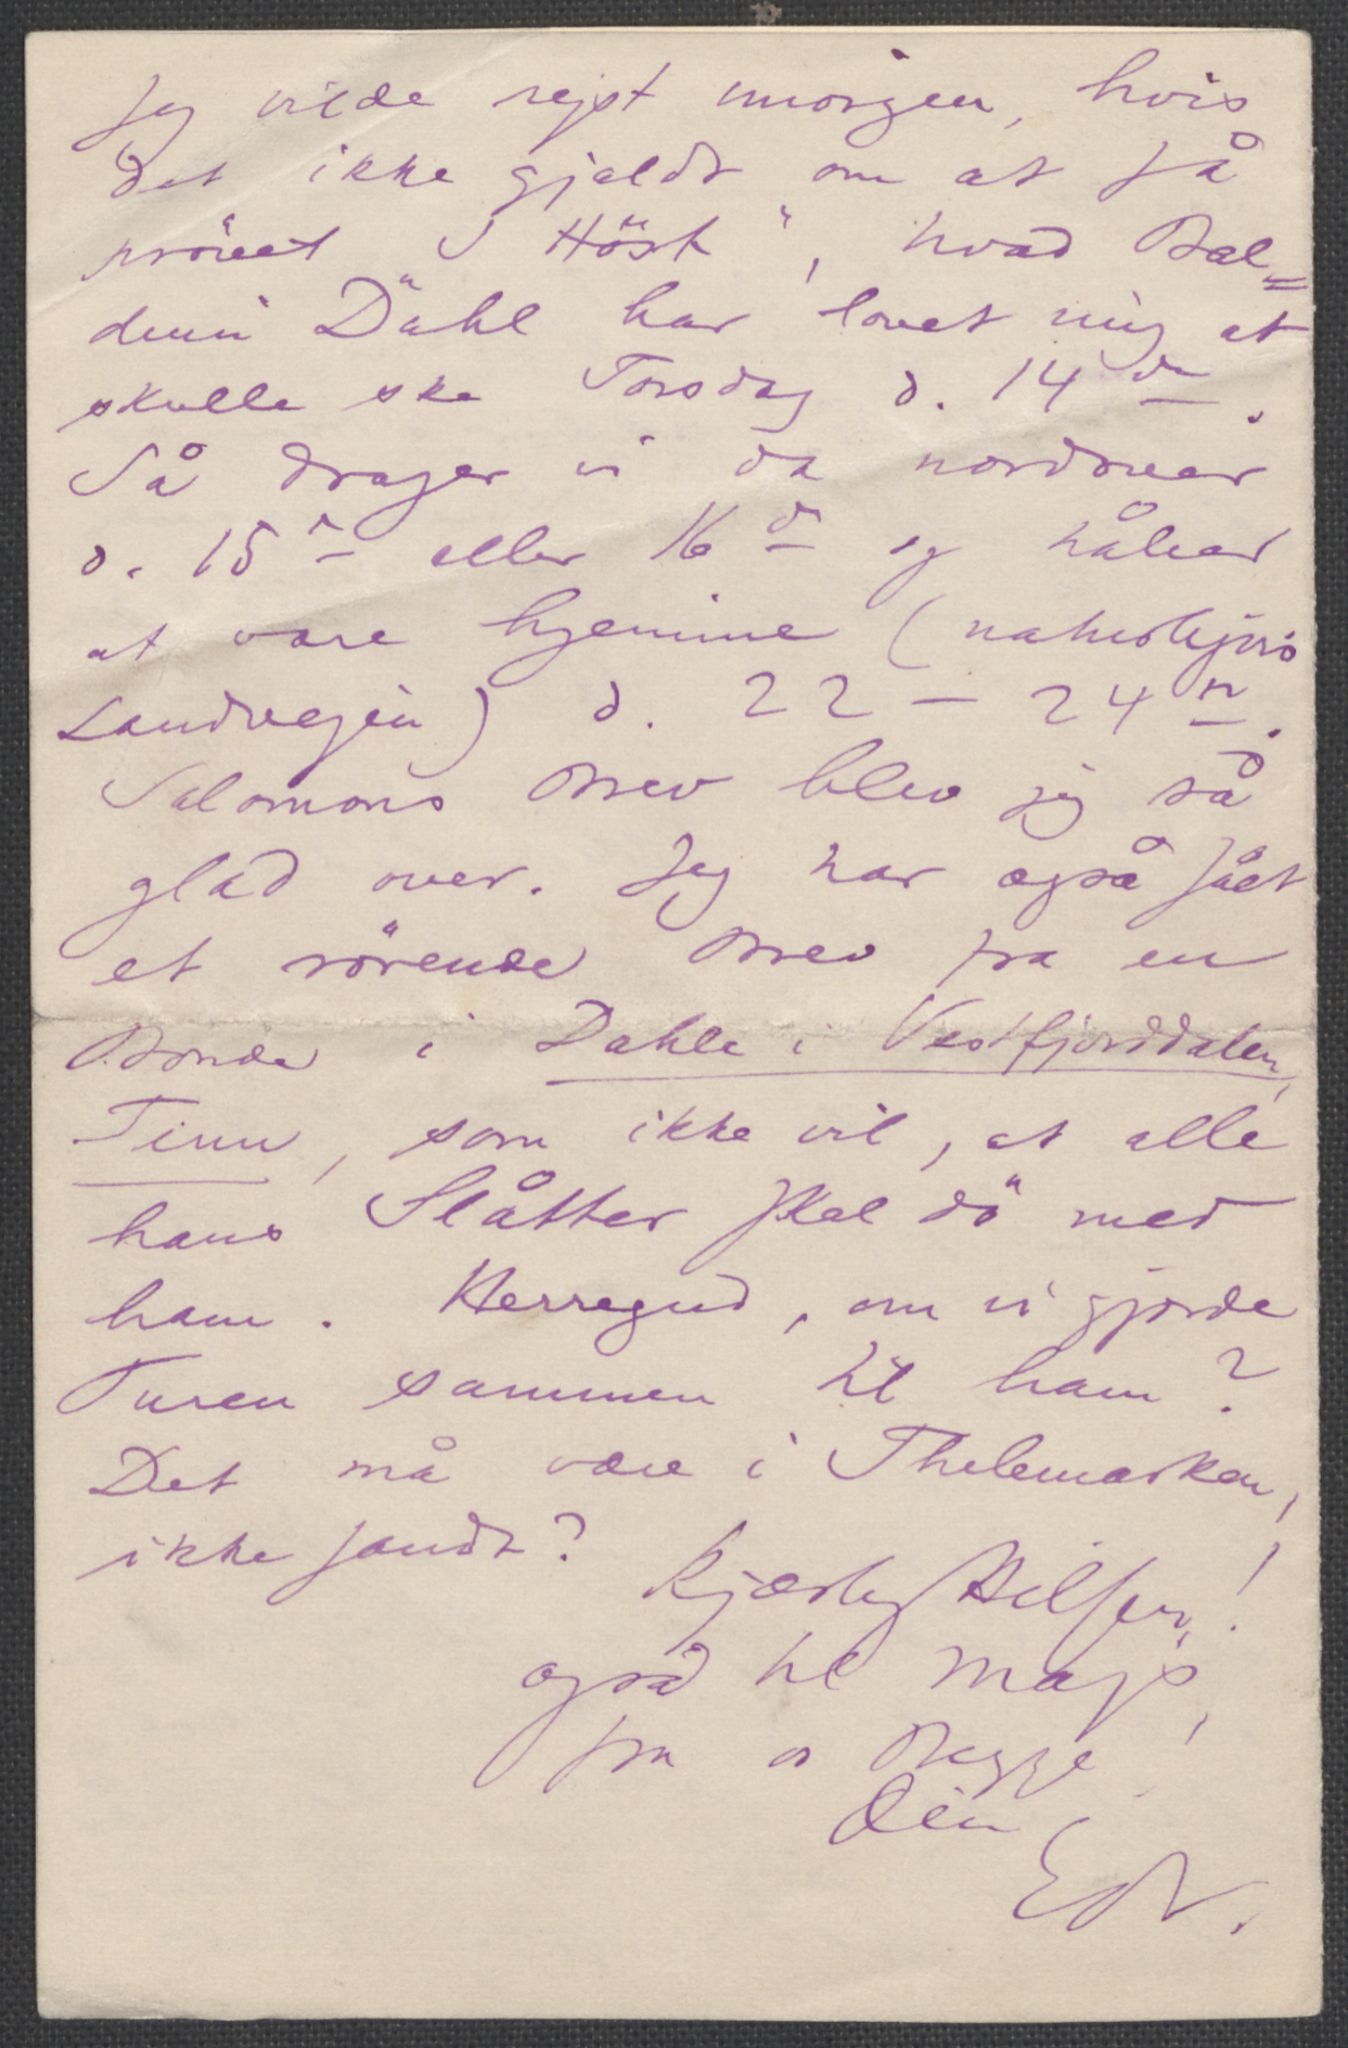 Jeg vilde rejst imorgen, hvis
det ikke gjaldt om at få
prövet "I Höst", hvad Bal=
duin Dahl har lovet mig at
skulle ske Torsdag d. 14de.
Så drager vi da nordover
d. 15de eller 16de og håber
at være hjemme (naturligvis
Landvejen) d. 22 – 24de.
Salomons Brev blev jeg så
glad over. Jeg har også fået
et rörende Brev fra en
Bonde i Dahle i Vestfjorddalen,
Tinn, som ikke vil, at alle
hans Slåtter skal dö med
ham. Herregud, om vi gjorde
Turen sammen til ham?
Det må være i Thelemarken,
ikke sandt?
Kjærlig Hilsen!
også til Majs,
fra os Begge!
Din
Edv.